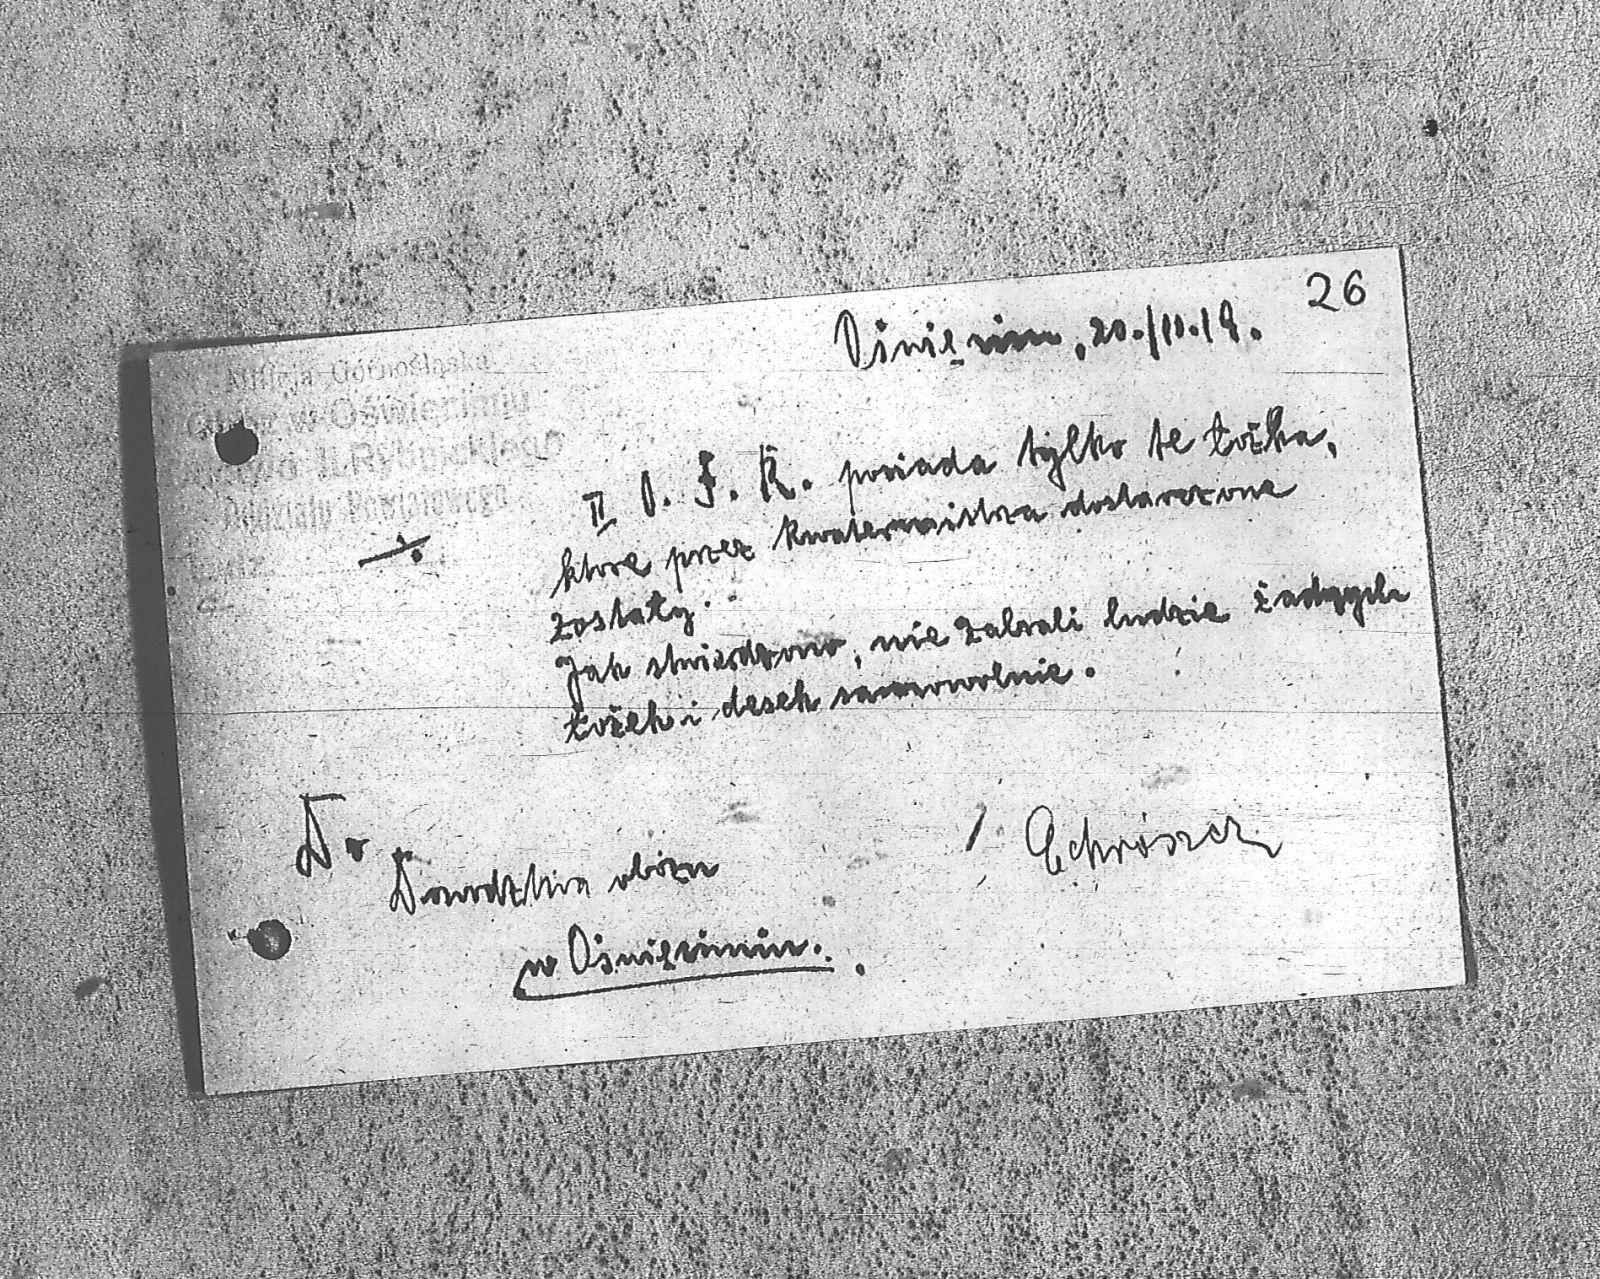 26
Oświęcim, 20./11.19.
Milicja Górnośląska
Obóz w Oświęcimiu
II. Rybnickiego
Oddziału Powiatowego
II O. F. R. posiada tylko te łóżka,
które przez kwatermistrza dostarczone
zostały.
Jak stwierdzono, nie zabrali ludzie żadnych
łóżek i desek samowolnie.
Do
Dowództwa obozu
w Oświęcimiu.